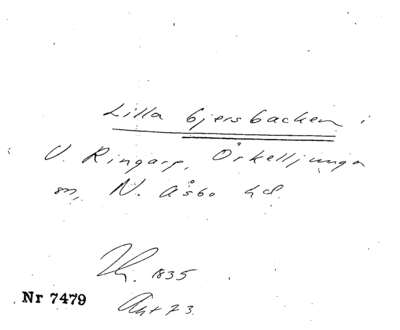 Lilla Gjersbacken i
V. Ringarp, Örkelljunga
sn, N. Åsbo hd.
1835
Nr 7479
Akt 73.